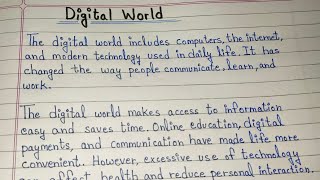 Digital World
The digital world includes computers, the internet,
and modern technology used in daily life. It has
changed the way people communicate, learn, and
work.
The digital world makes access to information
easy and saves time. Online education, digital
payments, and communication have made life more
convenient. However, excessive use of technology
affect health and reduce personal interaction.